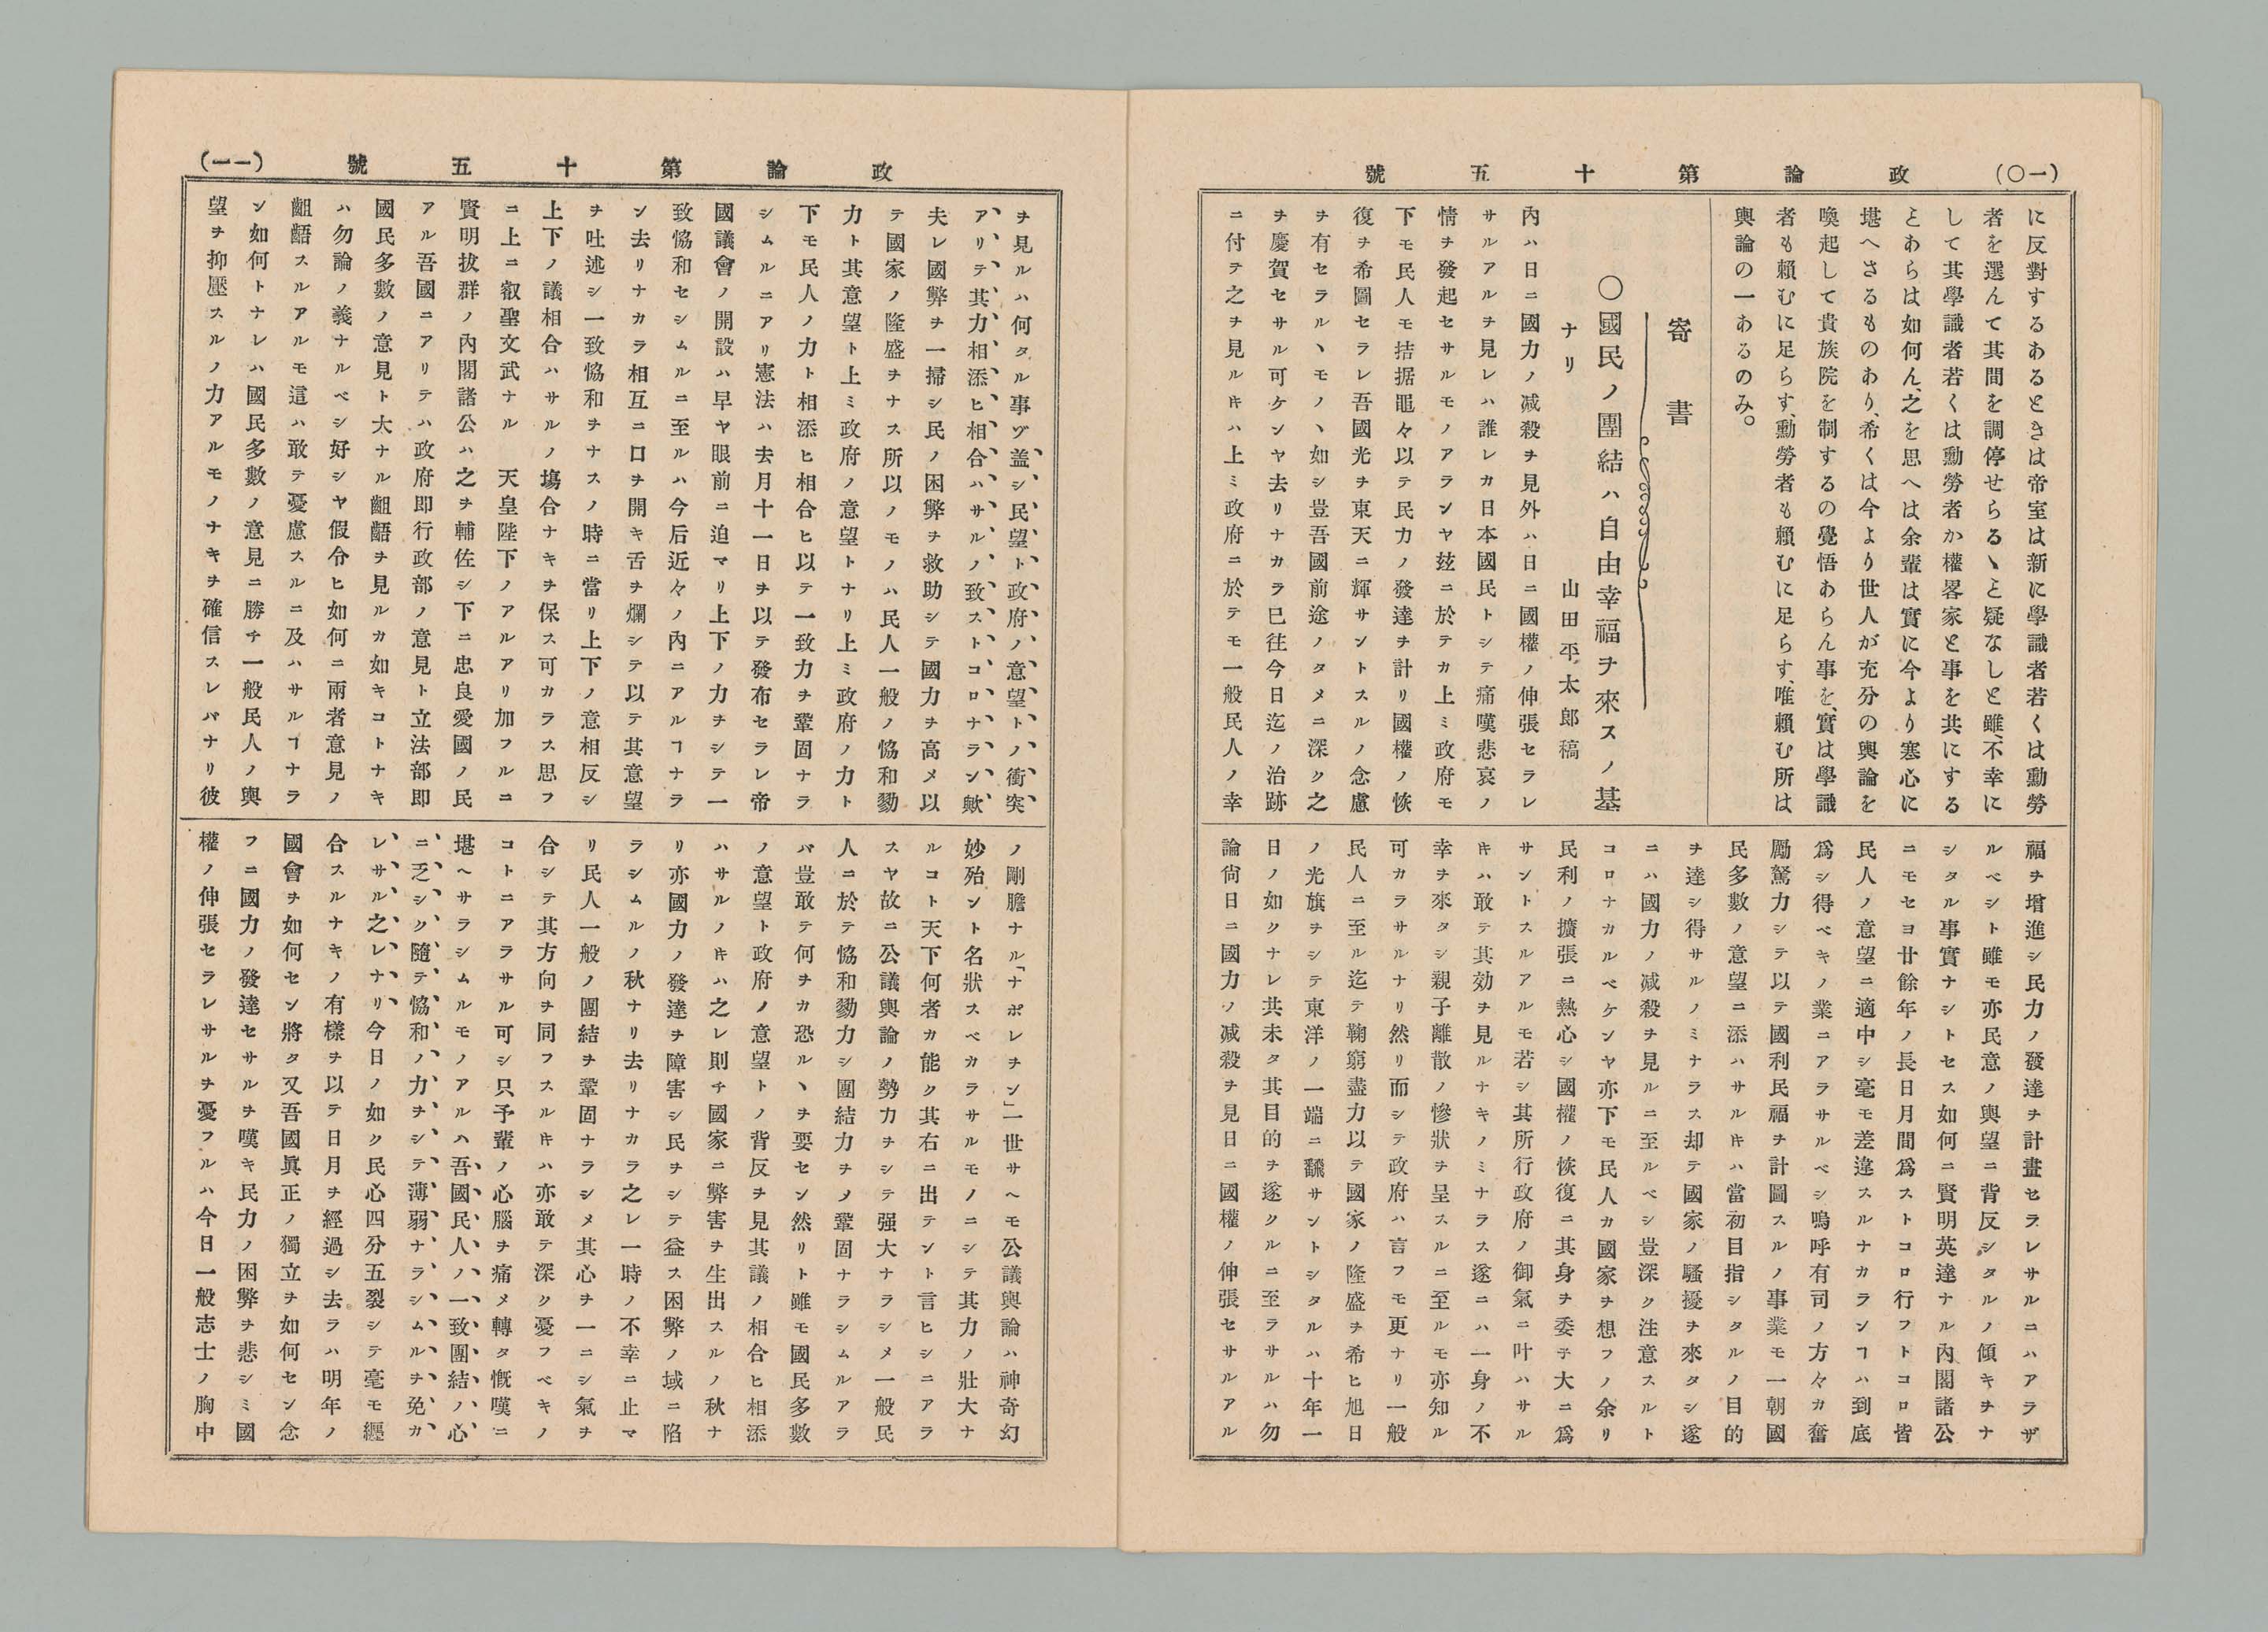 (一〇) 政論第十五號
に反對するあるときは帝室は新に學識者若くは勳勞
者を選んて其間を調停せらるヽと疑なしと雖、不幸に
して其學識者若くは勳勞者か權畧家と事を共にする
とあらは如何ん、之を思へは余輩は實に今より寒心に
堪へさるものあり、希くは今より世人が充分の輿論を
喚起して貴族院を制するの覺悟あらん事を、實は學識
者も賴むに足らす、勳勞者も賴むに足らす、唯賴む所は
輿論の一あるのみ。
寄書
〇國民ノ團結ハ自由幸福ヲ來スノ基
ナリ
山田平太郎稿
內ハ日ニ國力ノ减殺ヲ見外ハ日ニ國權ノ伸張セラレ
サルアルヲ見レハ誰レカ日本國民トシテ痛嘆悲哀ノ
情ヲ發起セサルモノアランヤ玆ニ於テカ上ミ政府モ
下モ民人モ拮据黽々以テ民力ノ發達ヲ計リ國權ノ恢
復ヲ希圖セラレ吾國光ヲ東天ニ輝サントスルノ念慮
ヲ有セラルヽモノヽ如シ豈吾國前途ノタメニ深ク之
ヲ慶賀セサル可ケンヤ去リナカラ已往今日迄ノ治跡
ニ付テ之ヲ見ルキハ上ミ政府ニ於テモ一般民人ノ幸
福ヲ增進シ民力ノ發達ヲ計畫セラレサルニハアラザ
ルベシト雖モ亦民意ノ輿望ニ背反シタルノ傾キヲナ
シタル事實ナシトセス如何ニ賢明英達ナル內閣諸公
ニモセヨ廿餘年ノ長日月間爲ストコロ行フトコロ皆
民人ノ意望ニ適中シ毫モ差違スルナカランヿハ到底
爲シ得ベキノ業ニアラサルベシ嗚呼有司ノ方々カ奮
勵駑力シテ以テ國利民福ヲ計圖スルノ事業モ一朝國
民多數ノ意望ニ添ハサルキハ當初目指シタルノ目的
ヲ達シ得サルノミナラス却テ國家ノ騷擾ヲ來タシ遂
ニハ國力ノ减殺ヲ見ルニ至ルベシ豈深ク注意スルト
コロナカルベケンヤ亦下モ民人カ國家ヲ想フノ余リ
民利ノ擴張ニ熱心シ國權ノ恢復ニ其身ヲ委子大ニ爲
サントスルアルモ若シ其所行政府ノ御氣ニ叶ハサル
キハ敢テ其効ヲ見ルナキノミナラス遂ニハ一身ノ不
幸ヲ來タシ親子離散ノ慘狀ヲ呈スルニ至ルモ亦知ル
可カラサルナリ然リ而シテ政府ハ言フモ更ナリ一般
民人ニ至ル迄テ鞠窮盡力以テ國家ノ隆盛ヲ希ヒ旭日
ノ光旗ヲシテ東洋ノ一端ニ飜サントシタルハ十年一
日ノ如クナレ共未タ其目的ヲ遂クルニ至ラサルハ勿
論尙日ニ國力ノ减殺ヲ見日ニ國權ノ伸張セサルアル
政論第十五號 (一一)
ヲ見ルハ何タル事ヅ盖シ民望ト政府ノ意望トノ衝突
アリテ其力相添ヒ相合ハサルノ致ストコロナラン歟
夫レ國弊ヲ一掃シ民ノ困弊ヲ救助シテ國力ヲ高メ以
テ國家ノ隆盛ヲナス所以ノモノハ民人一般ノ恊和勠
力ト其意望ト上ミ政府ノ意望トナリ上ミ政府ノ力ト
下モ民人ノ力ト相添ヒ相合ヒ以テ一致力ヲ鞏固ナラ
シムルニアリ憲法ハ去月十一日ヲ以テ發布セラレ帝
國議會ノ開設ハ早ヤ眼前ニ迫マリ上下ノ力ヲシテ一
致恊和セシムルニ至ルハ今后近々ノ內ニアルヿナラ
ン去リナカラ相互ニ口ヲ開キ舌ヲ爛シテ以テ其意望
ヲ吐述シ一致恊和ヲナスノ時ニ當リ上下ノ意相反シ
上下ノ議相合ハサルノ塲合ナキヲ保ス可カラス思フ
ニ上ニ叡聖文武ナル　天皇陛下ノアルアリ加フルニ
賢明拔群ノ內閣諸公ハ之ヲ輔佐シ下ニ忠良愛國ノ民
アル吾國ニアリテハ政府即行政部ノ意見ト立法部即
國民多數ノ意見ト大ナル齟齬ヲ見ルカ如キコトナキ
ハ勿論ノ義ナルベシ好シヤ假令ヒ如何ニ兩者意見ノ
齟齬スルアルモ這ハ敢テ憂慮スルニ及ハサルヿナラ
ン如何トナレハ國民多數ノ意見ニ勝チ一般民人ノ輿
望ヲ抑壓スルノ力アルモノナキヲ確信スレバナリ彼
ノ剛膽ナル「ナポレヲン」一世サヘモ公議輿論ハ神奇幻
妙殆ント名狀スベカラサルモノニシテ其力ノ壯大ナ
ルコト天下何者カ能ク其右ニ出テント言ヒシニアラ
スヤ故ニ公議輿論ノ勢力ヲシテ强大ナラシメ一般民
人ニ於テ恊和勠力シ團結力ヲノ鞏固ナラシムルアラ
バ豈敢テ何ヲカ恐ルヽヲ要セン然リト雖モ國民多數
ノ意望ト政府ノ意望トノ背反ヲ見其議ノ相合ヒ相添
ハサルノキハ之レ則チ國家ニ弊害ヲ生出スルノ秋ナ
リ亦國力ノ發達ヲ障害シ民ヲシテ益ス困弊ノ域ニ陷
ラシムルノ秋ナリ去リナカラ之レ一時ノ不幸ニ止マ
リ民人一般ノ團結ヲ鞏固ナラシメ其心ヲ一ニシ氣ヲ
合シテ其方向ヲ同フスルキハ亦敢テ深ク憂フベキノ
コトニアラサル可シ只予輩ノ心腦ヲ痛メ轉タ慨嘆ニ
堪ヘサラシムルモノアルハ吾國民人ノ一致團結ノ心
ニ乏シク隨テ恊和ノ力ヲシテ薄弱ナラシムルヲ免カ
レサル之レナリ今日ノ如ク民心四分五裂シテ毫モ纒
合スルナキノ有樣ヲ以テ日月ヲ經過シ去ラハ明年ノ
國會ヲ如何セン將タ又吾國眞正ノ獨立ヲ如何セン念
フニ國力ノ發達セサルヲ嘆キ民力ノ困弊ヲ悲シミ國
權ノ伸張セラレサルヲ憂フルハ今日一般志士ノ胸中